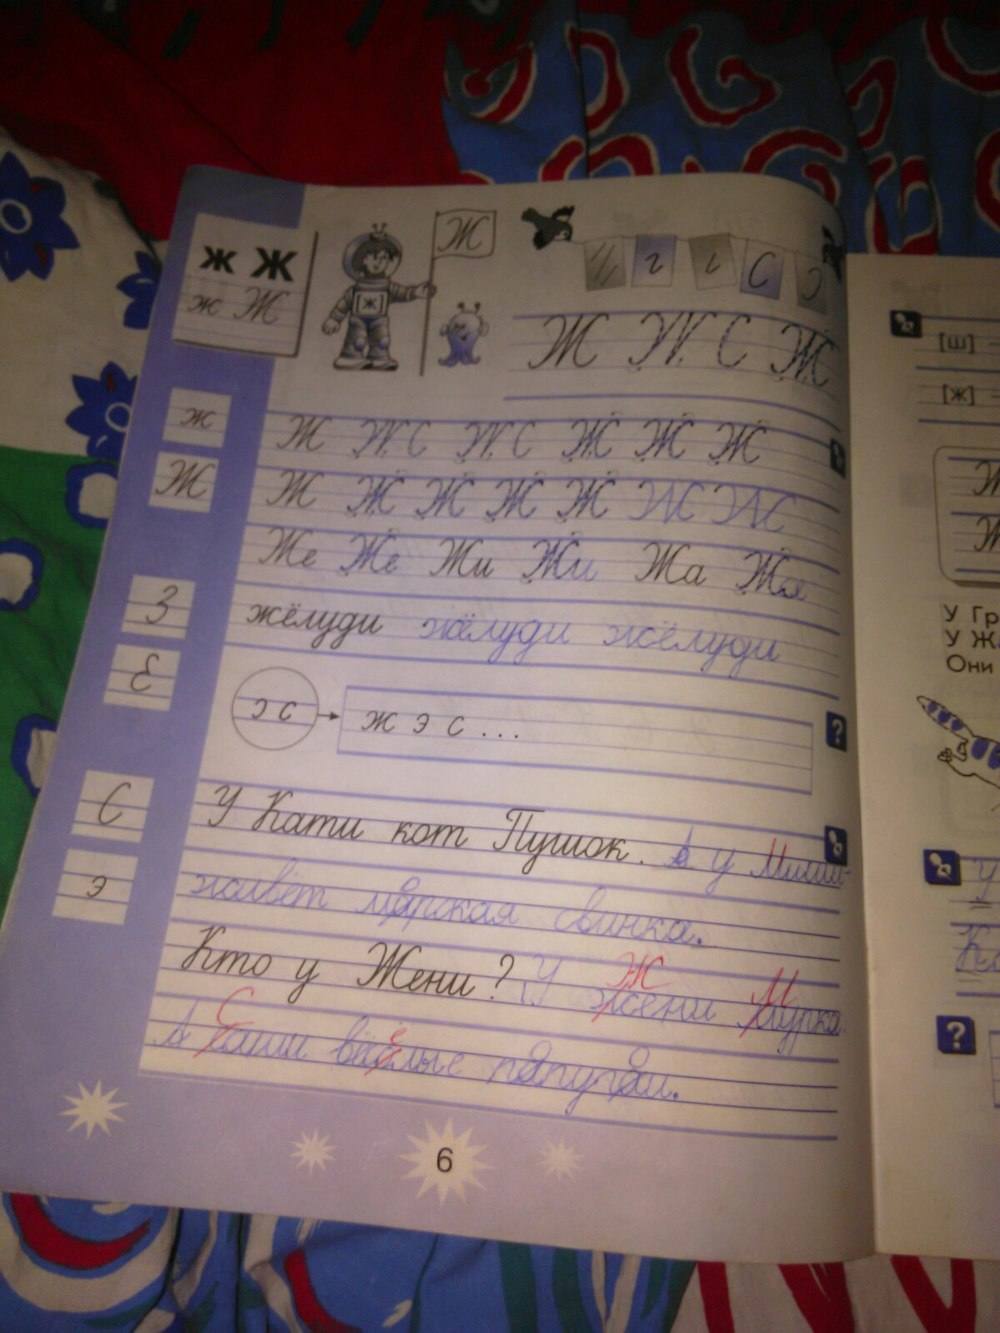 ж Ж
ж Ж
Ж
ж
г С Э
Ж С Ж
[ш]
[ж]
ж
Ж С С Ж Ж Ж
Ж
Ж Ж Ж Ж Ж
Же Же Жи Жи Жа Жа
З
жёлуди жёлуди жёлуди
Є
э с
ж э с ...
?
У Гр
У Ж
Они
С
У Кати кот Пушок. А у Миши
э
живёт морская свинка.
Кто у Жени? У Жени Мурка.
А Саши весёлые попугаи.
?
6